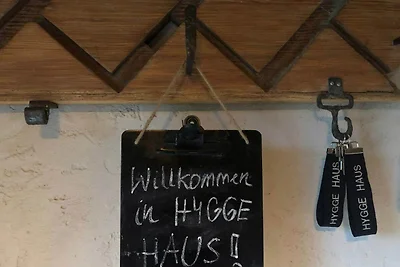 Willkommen
in HYGGE
HAUS!
HYGGE HAUS
HYGGE HAUS